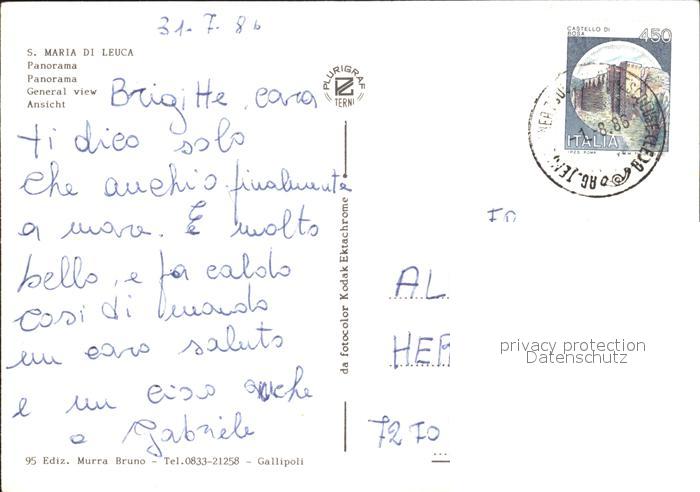 31.7.86
S. MARIA DI LEUCA
Panorama
Panorama
General view
Ansicht
Brigitte, cara
ti dico solo
che anch'io finalmente
a mare. È molto
bello, e fa caldo
così ti mando
un caro saluto
e un ciao anche
a Gabriele
95 Ediz. Murra Bruno - Tel.0833-21258 - Gallipoli
PLURIGRAF
TERNI
da fotocolor Kodak Ektachrome
CASTELLO DI
BOSA
450
ITALIA
I.P.Z.S. ROMA
1.-8.86
AL
HER
7270
privacy protection
Datenschutz